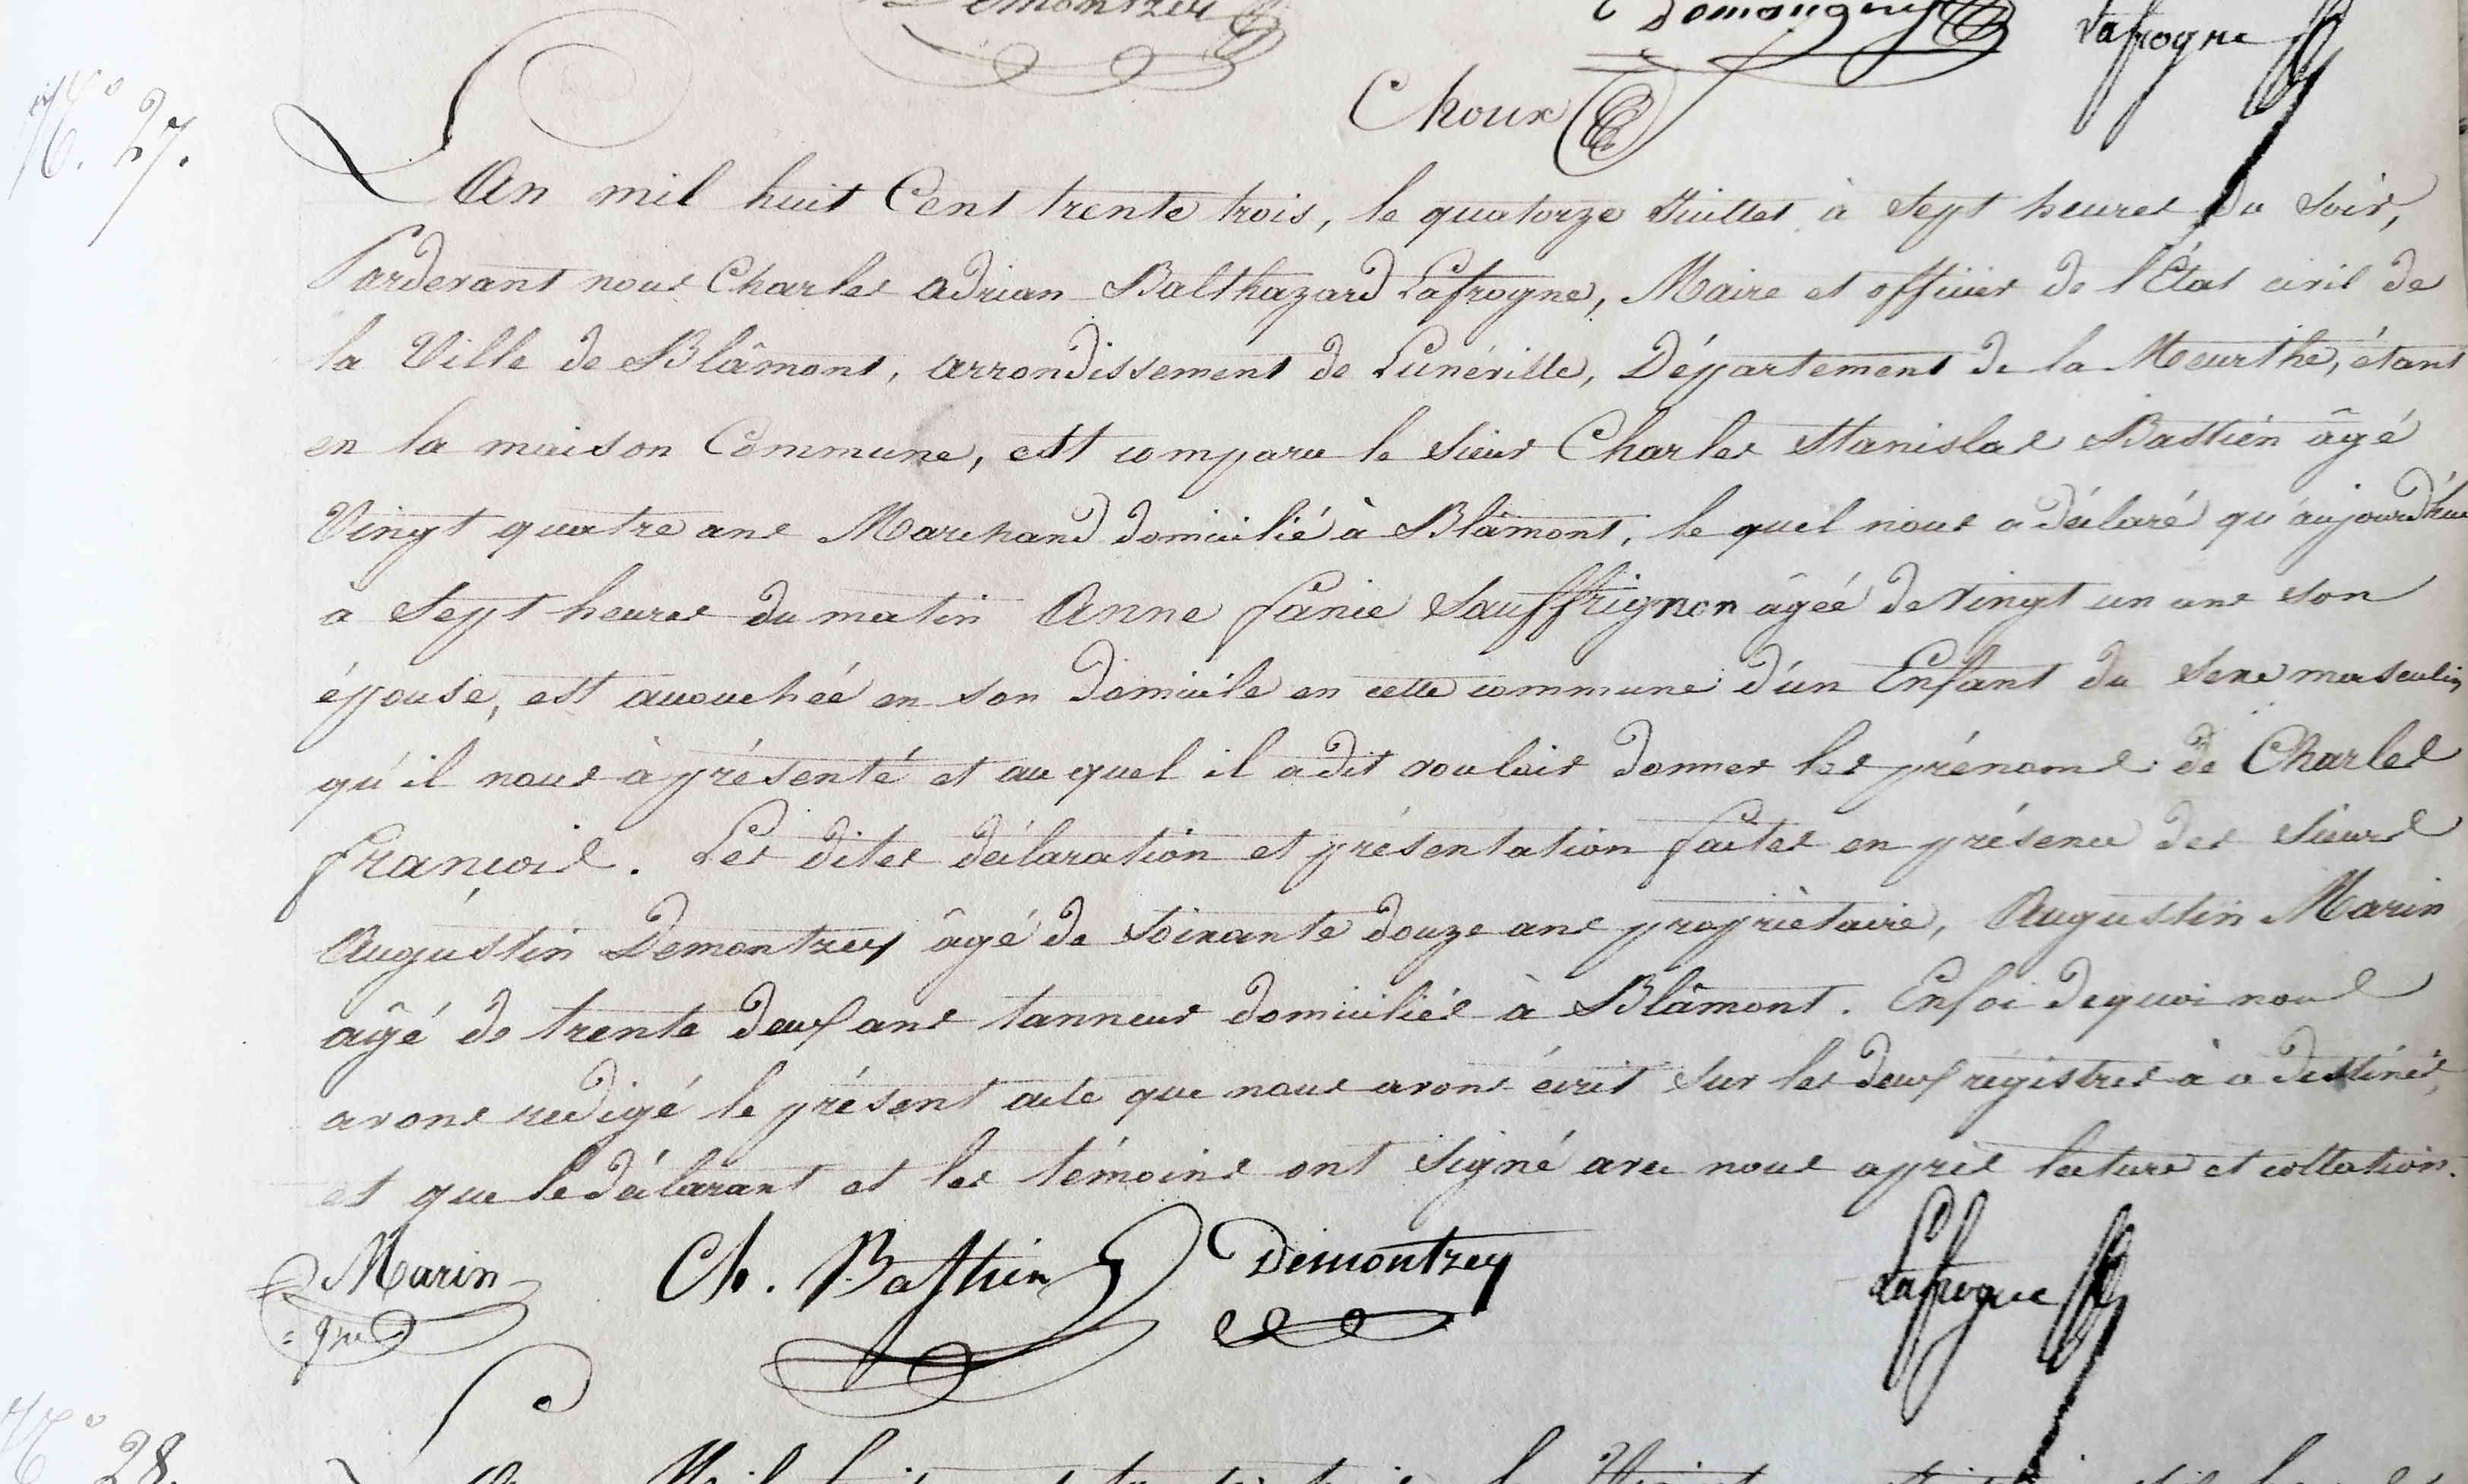 Demontzey Domangeny Lafrogne
Choux
N.° 27.
L'An mil huit Cent trente trois, le quatorze Juillet à Sept heures du Soir,
Pardevant nous Charles Adrian Balthazard Lafrogne, Maire et officier de l'État civil de
la Ville de Blâmont, arrondissement de Lunéville, Département de la Meurthe, étant
en la maison Commune, est comparu le Sieur Charles Stanislas Bastien âgé
Vingt quatre ans Marchand domicilié à Blâmont, le quel nous a déclaré qu'aujourd'hui
à Sept heures du matin Anne fanie Sauffrignon âgéé de Vingt un ans Son
épouse, est accouchéé en son domicile en cette commune d'un Enfant du Sexe masculin
qu'il nous à présenté et au quel il a dit vouloir donner les prénoms de Charles
françois. Les dites déclaration et présentation faites en présence des Sieurs
Augustin Demontzey âgé de Soixante douze ans propriètaire, Augustin Marin
âgé de trente deux ans tanneur domiciliés à Blâmont. En foi de quoi nous
avons redigé le présent acte que nous avons écrit Sur les deux régistres à a destinés,
et que le déclarant et les témoins ont Signé avec nous après lecture et collation.
Marin Ch. Bastien Demontzey Lafrogne
= gne
N.° 28.